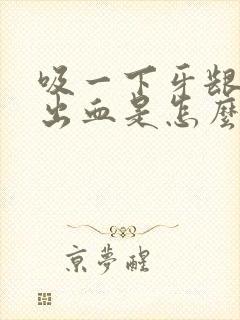 吸一下牙龈
出血是怎麼
京夢醒